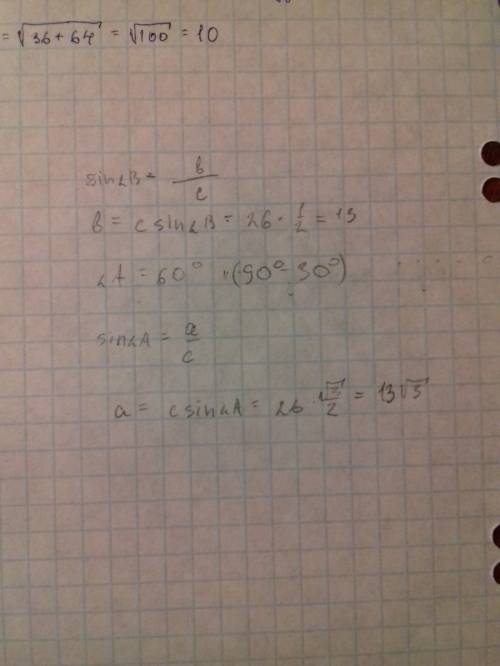 = √(36 + 64) = √100 = 10
sin∠B = b/c
b = c sin∠B = 26 · 1/2 = 13
∠A = 60° (90° - 30°)
sin∠A = a/c
a = c sin∠A = 26 · √3/2 = 13√3